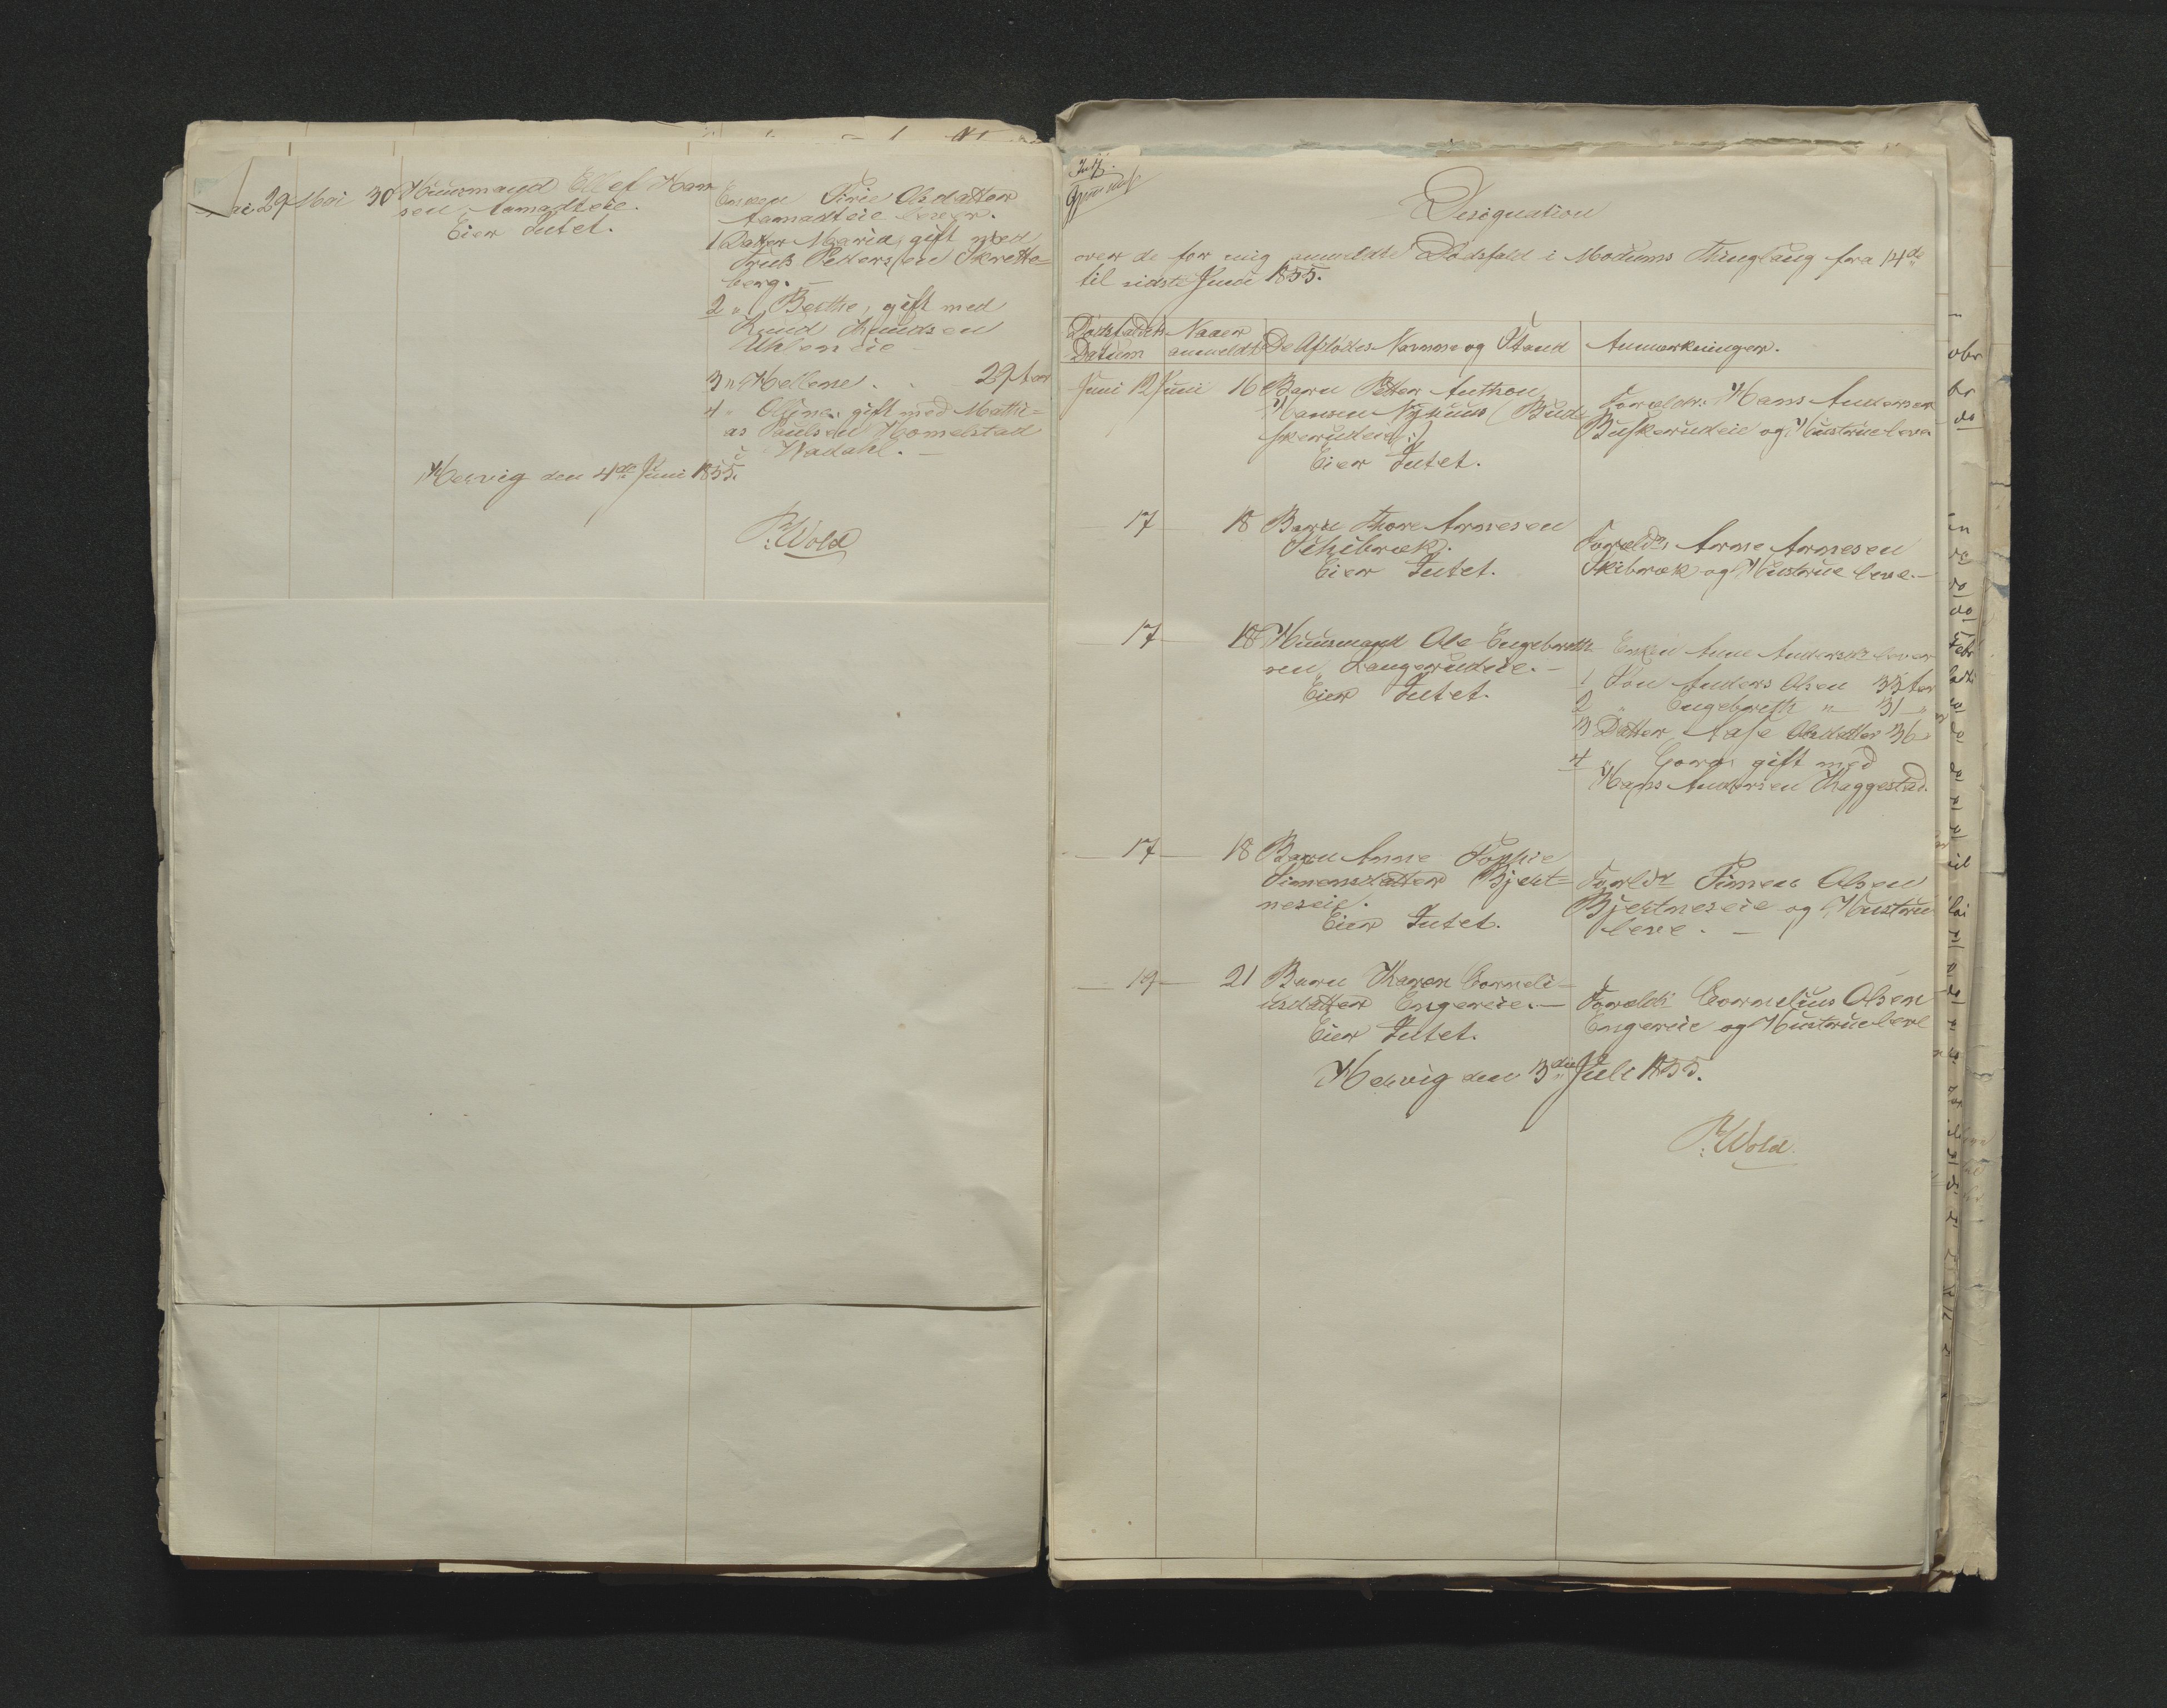 29 Mai 30 Huusmand Ellef Han
sen Aamodteie.
Eier Intet.
Enken Siri Olsdatter
Aamodteie lever.
1 Datter Maria, gift med
Truls Pettersen Skrette=
berg. –
2 " Berthe, gift med
Knud Knudsen
Uhleneie
3 " Hellene . . 29 Aar
4 " Olline, gift med Mathi=
as Paulsen Homelstad
Hadahl. –
Hervig den 4de Juni 1855.
P: Wold
Designation
over de for mig anmeldte Dødsfald i Modums Thinglaug fra 14de
til sidste Juni 1855.
Dødsfaldets
Datum
Naar
anmeldt
De Afdødes Navnne og Stand
Anmærkninger.
Juni 12 Juni 16 Barn Petter Anthon
Hansen Nyhuus (Bu
skerudeie)
Eier Intet.
Foreldr: Hans Andersen
Buskerudeie og Hustrue leve
17 18 Barn Thore Arnesen
Skibræk.
Eier Intet.
Foreldr Arne Arnesen
Skibræk og Hustrue leve. –
17 18 Huusmand Ole Engebreth
sen Langerudeie. –
Eier Intet.
Enken Anne Andersdr lever
1 Søn Anders Olsen 33 Aar
2 " Engebreth " 31 "
3 Datter Aase Olsdatter 36
4 " Goro, gift med
Hans Andersen Kaggestad.
17 18 Barn Anne Sophie
Simensdatter Bjert=
neseie.
Eier Intet.
Foreldr Simen Olsen
Bjertneseie og Hustrue
leve. –
19 21 Barn Karen Corneli=
usdatter Engereie. –
Eier Intet.
Foreldr Cornelius Olsen
Engereie og Hustrue leve
Hervig den 3die Juli 1855.
P: Wold